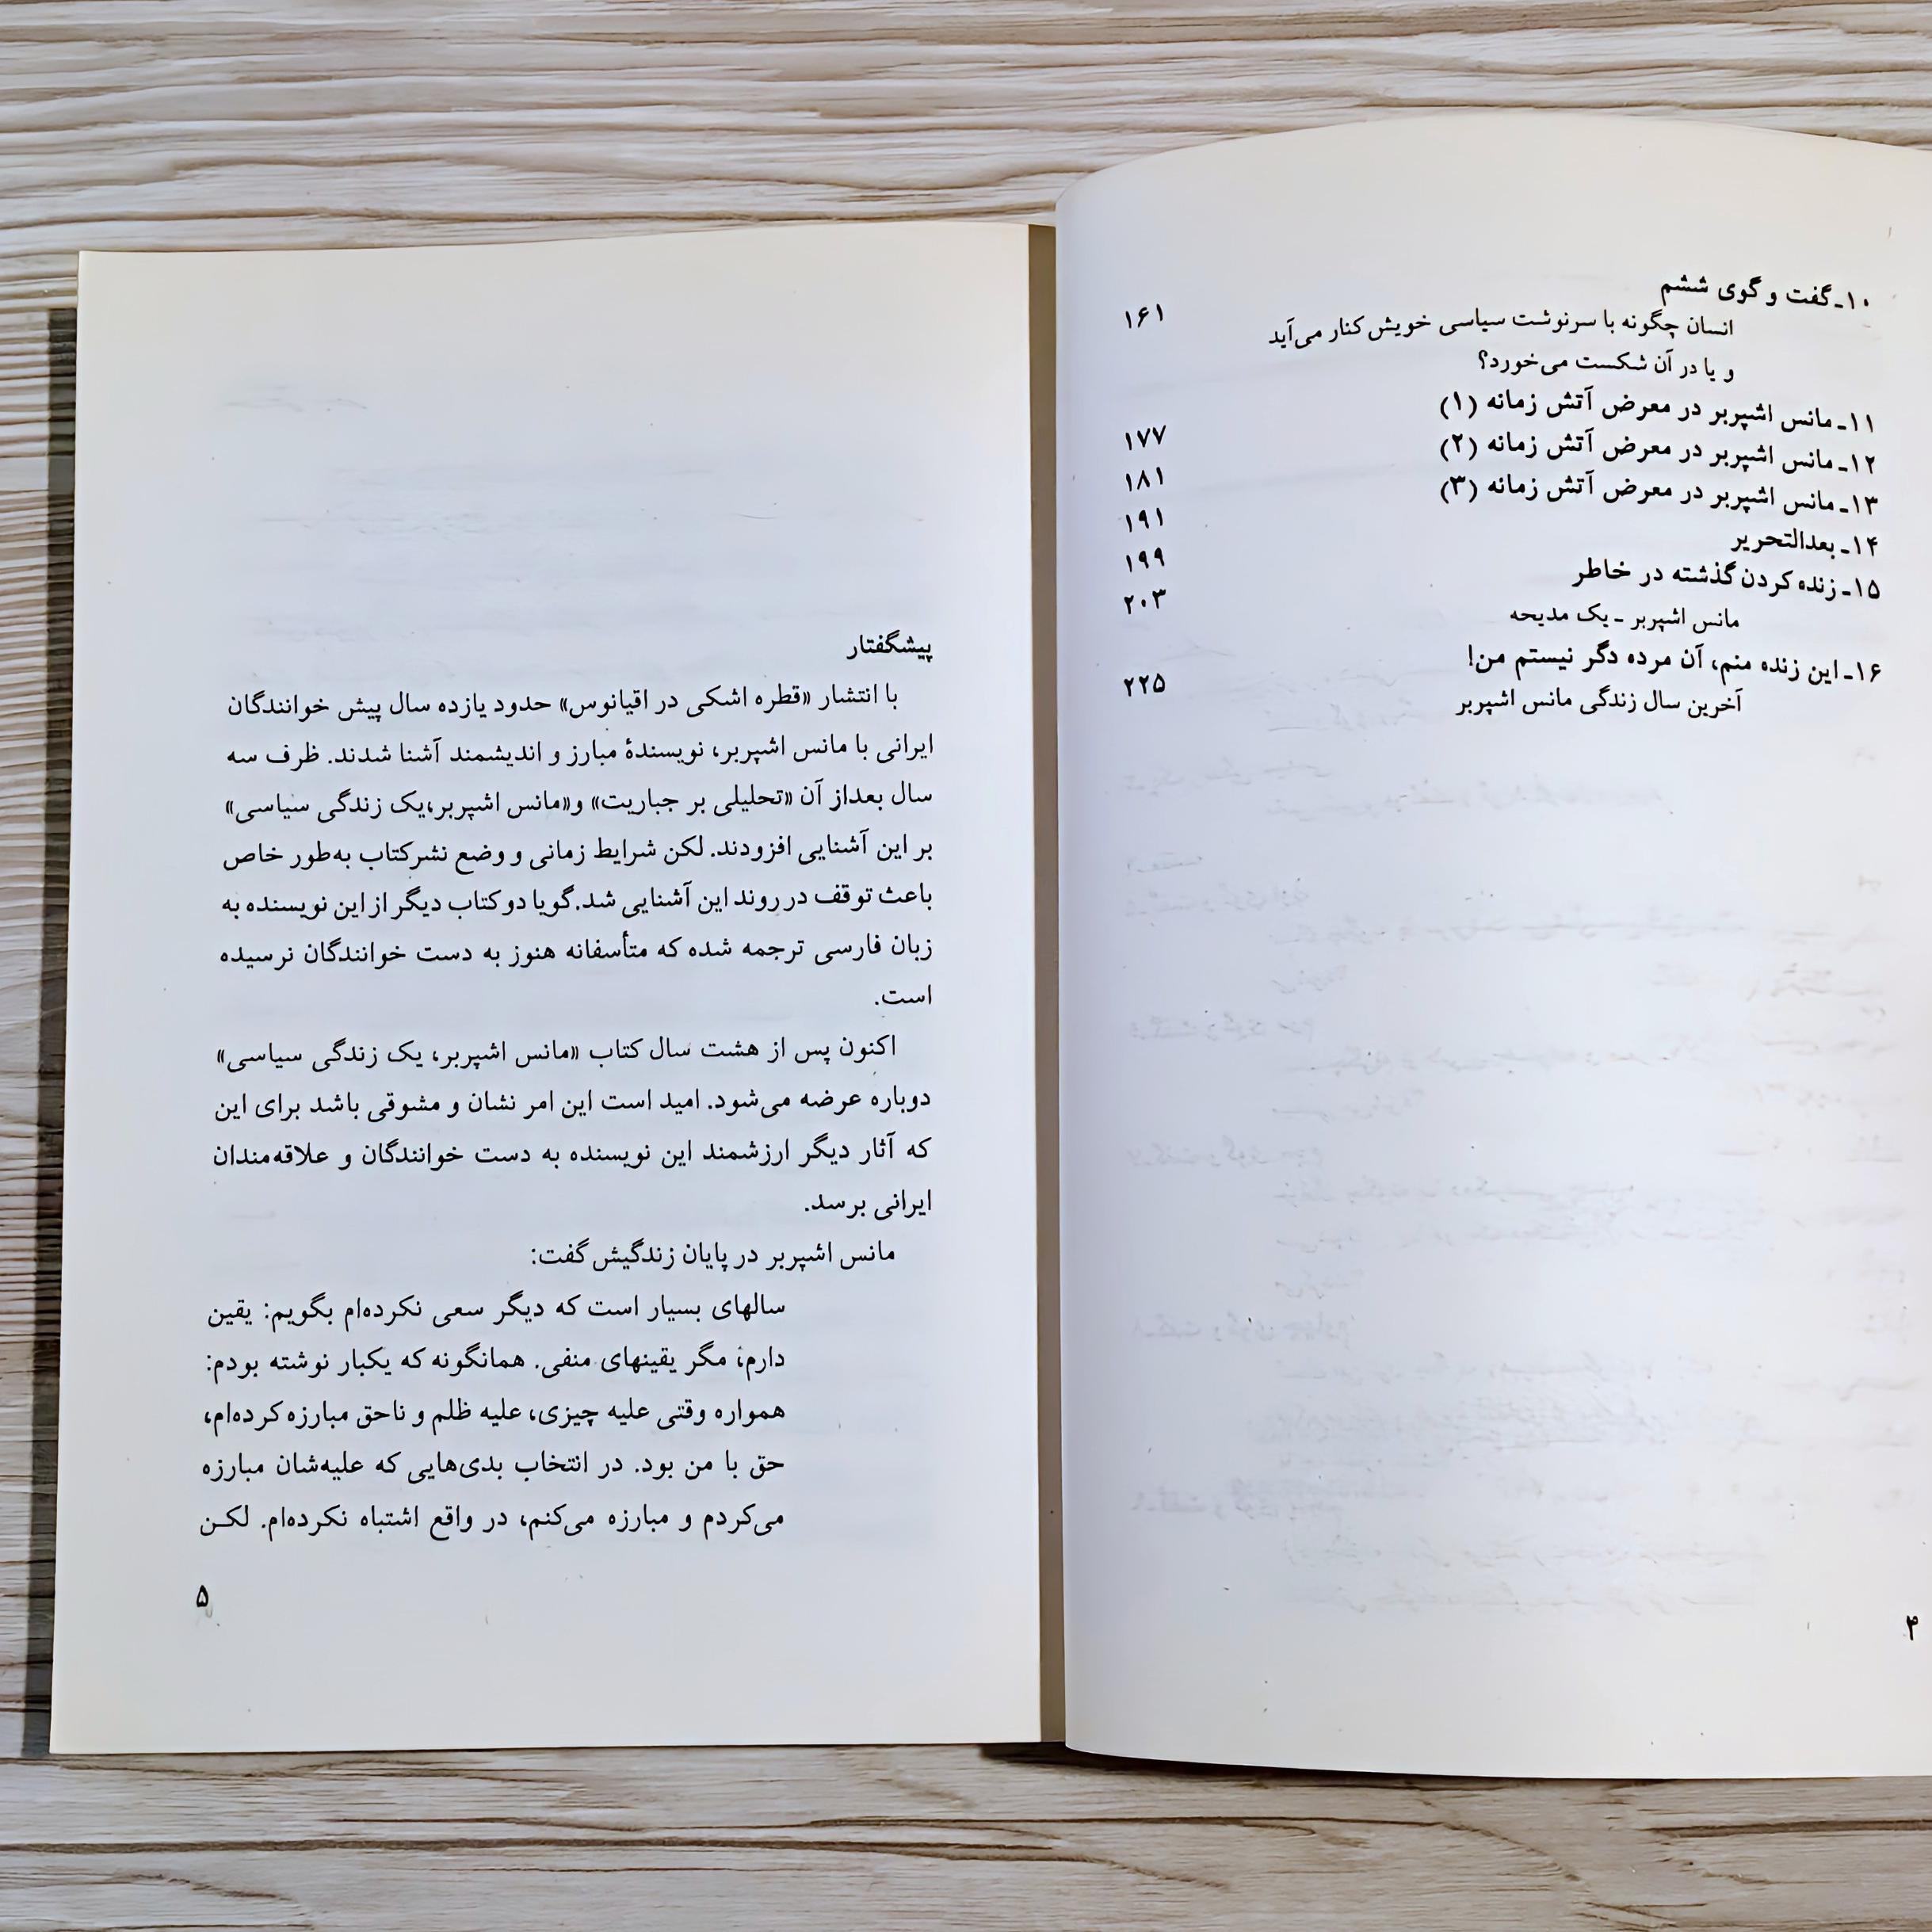 ۱۰ـ گفت و گوی ششم
انسان چگونه با سرنوشت سیاسی خویش کنار می‌آید ۱۶۱
و یا در آن شکست می‌خورد؟
۱۱ـ مانس اشپربر در معرض آتش زمانه (۱) ۱۷۷
۱۲ـ مانس اشپربر در معرض آتش زمانه (۲) ۱۸۱
۱۳ـ مانس اشپربر در معرض آتش زمانه (۳) ۱۹۱
۱۴ـ بعدالتحریر ۱۹۹
۱۵ـ زنده کردن گذشته در خاطر ۲۰۳
مانس اشپربر ـ یک مدیحه
۱۶ـ این زنده منم، آن مرده دگر نیستم من! ۲۲۵
آخرین سال زندگی مانس اشپربر
۴
پیشگفتار
با انتشار «قطره اشکی در اقیانوس» حدود یازده سال پیش خوانندگان
ایرانی با مانس اشپربر، نویسندۀ مبارز و اندیشمند آشنا شدند. ظرف سه
سال بعداز آن «تحلیلی بر جباریت» و«مانس اشپربر،یک زندگی سیاسی»
بر این آشنایی افزودند. لکن شرایط زمانی و وضع نشرکتاب به‌طور خاص
باعث توقف در روند این آشنایی شد.گویا دو کتاب دیگر از این نویسنده به
زبان فارسی ترجمه شده که متأسفانه هنوز به دست خوانندگان نرسیده
است.
اکنون پس از هشت سال کتاب «مانس اشپربر، یک زندگی سیاسی»
دوباره عرضه می‌شود. امید است این امر نشان و مشوقی باشد برای این
که آثار دیگر ارزشمند این نویسنده به دست خوانندگان و علاقه‌مندان
ایرانی برسد.
مانس اشپربر در پایان زندگیش گفت:
سالهای بسیار است که دیگر سعی نکرده‌ام بگویم: یقین
دارم؛ مگر یقینهای منفی. همانگونه که یکبار نوشته بودم:
همواره وقتی علیه چیزی، علیه ظلم و ناحق مبارزه کرده‌ام،
حق با من بود. در انتخاب بدی‌هایی که علیه‌شان مبارزه
می‌کردم و مبارزه می‌کنم، در واقع اشتباه نکرده‌ام. لکن
۵